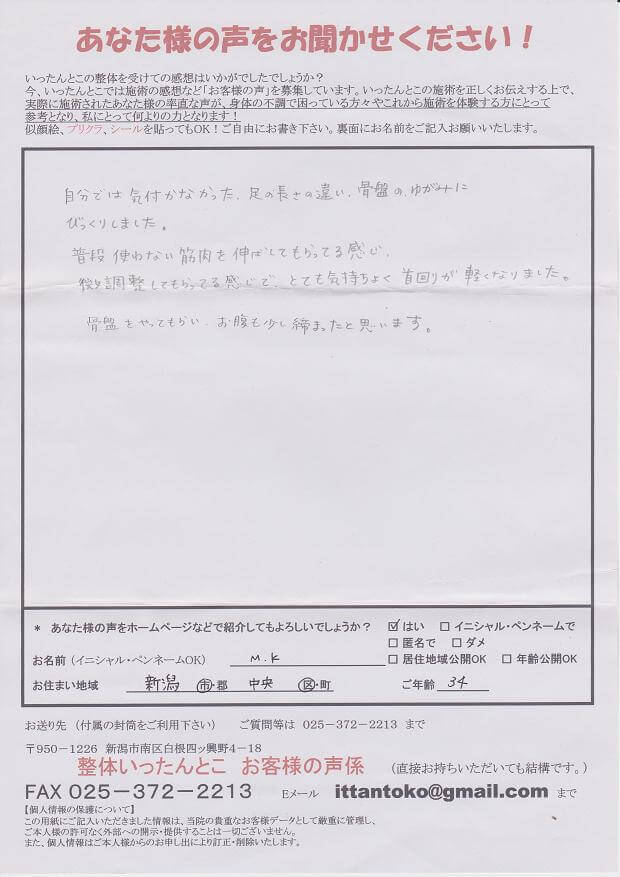 あなた様の声をお聞かせください！
いったんとこの整体を受けての感想はいかがでしたでしょうか？
今、いったんとこでは施術の感想など「お客様の声」を募集しています。いったんとこの施術を正しくお伝えする上で、
実際に施術されたあなた様の率直な声が、身体の不調で困っている方々やこれから施術を体験する方にとって
参考となり、私にとって何よりの力となります！
似顔絵、プリクラ、シールを貼ってもOK！ご自由にお書き下さい。裏面にお名前をご記入お願いいたします。
自分では気付かなかった、足の長さの違い、骨盤の、ゆがみに
びっくりしました。
普段使わない筋肉を伸ばしてもらってる感じ、
微調整してもらってる感じで、とても気持ちよく首回りが軽くなりました。
骨盤をやってもらい、お腹も少し締まったと思います。
* あなた様の声をホームページなどで紹介してもよろしいでしょうか？ ☑はい □イニシャル・ペンネームで
□匿名で □ダメ
お名前（イニシャル・ペンネームOK） M.K □居住地域公開OK □年齢公開OK
お住まい地域 新潟 市・郡 中央 区・町 ご年齢 34
お送り先 （付属の封筒をご利用下さい） ご質問等は 025－372－2213 まで
〒950－1226 新潟市南区白根四ッ興野4－18
整体いったんとこ お客様の声係 （直接お持ちいただいても結構です。）
FAX 025－372－2213 Eメール ittantoko@gmail.com まで
【個人情報の保護について】
この用紙にご記入いただきました情報は、当院の貴重なお客様データとして厳重に管理し、
ご本人様の許可なく外部への開示・提供することは一切ございません。
また、個人情報はご本人様からのお申し出により訂正・削除いたします。